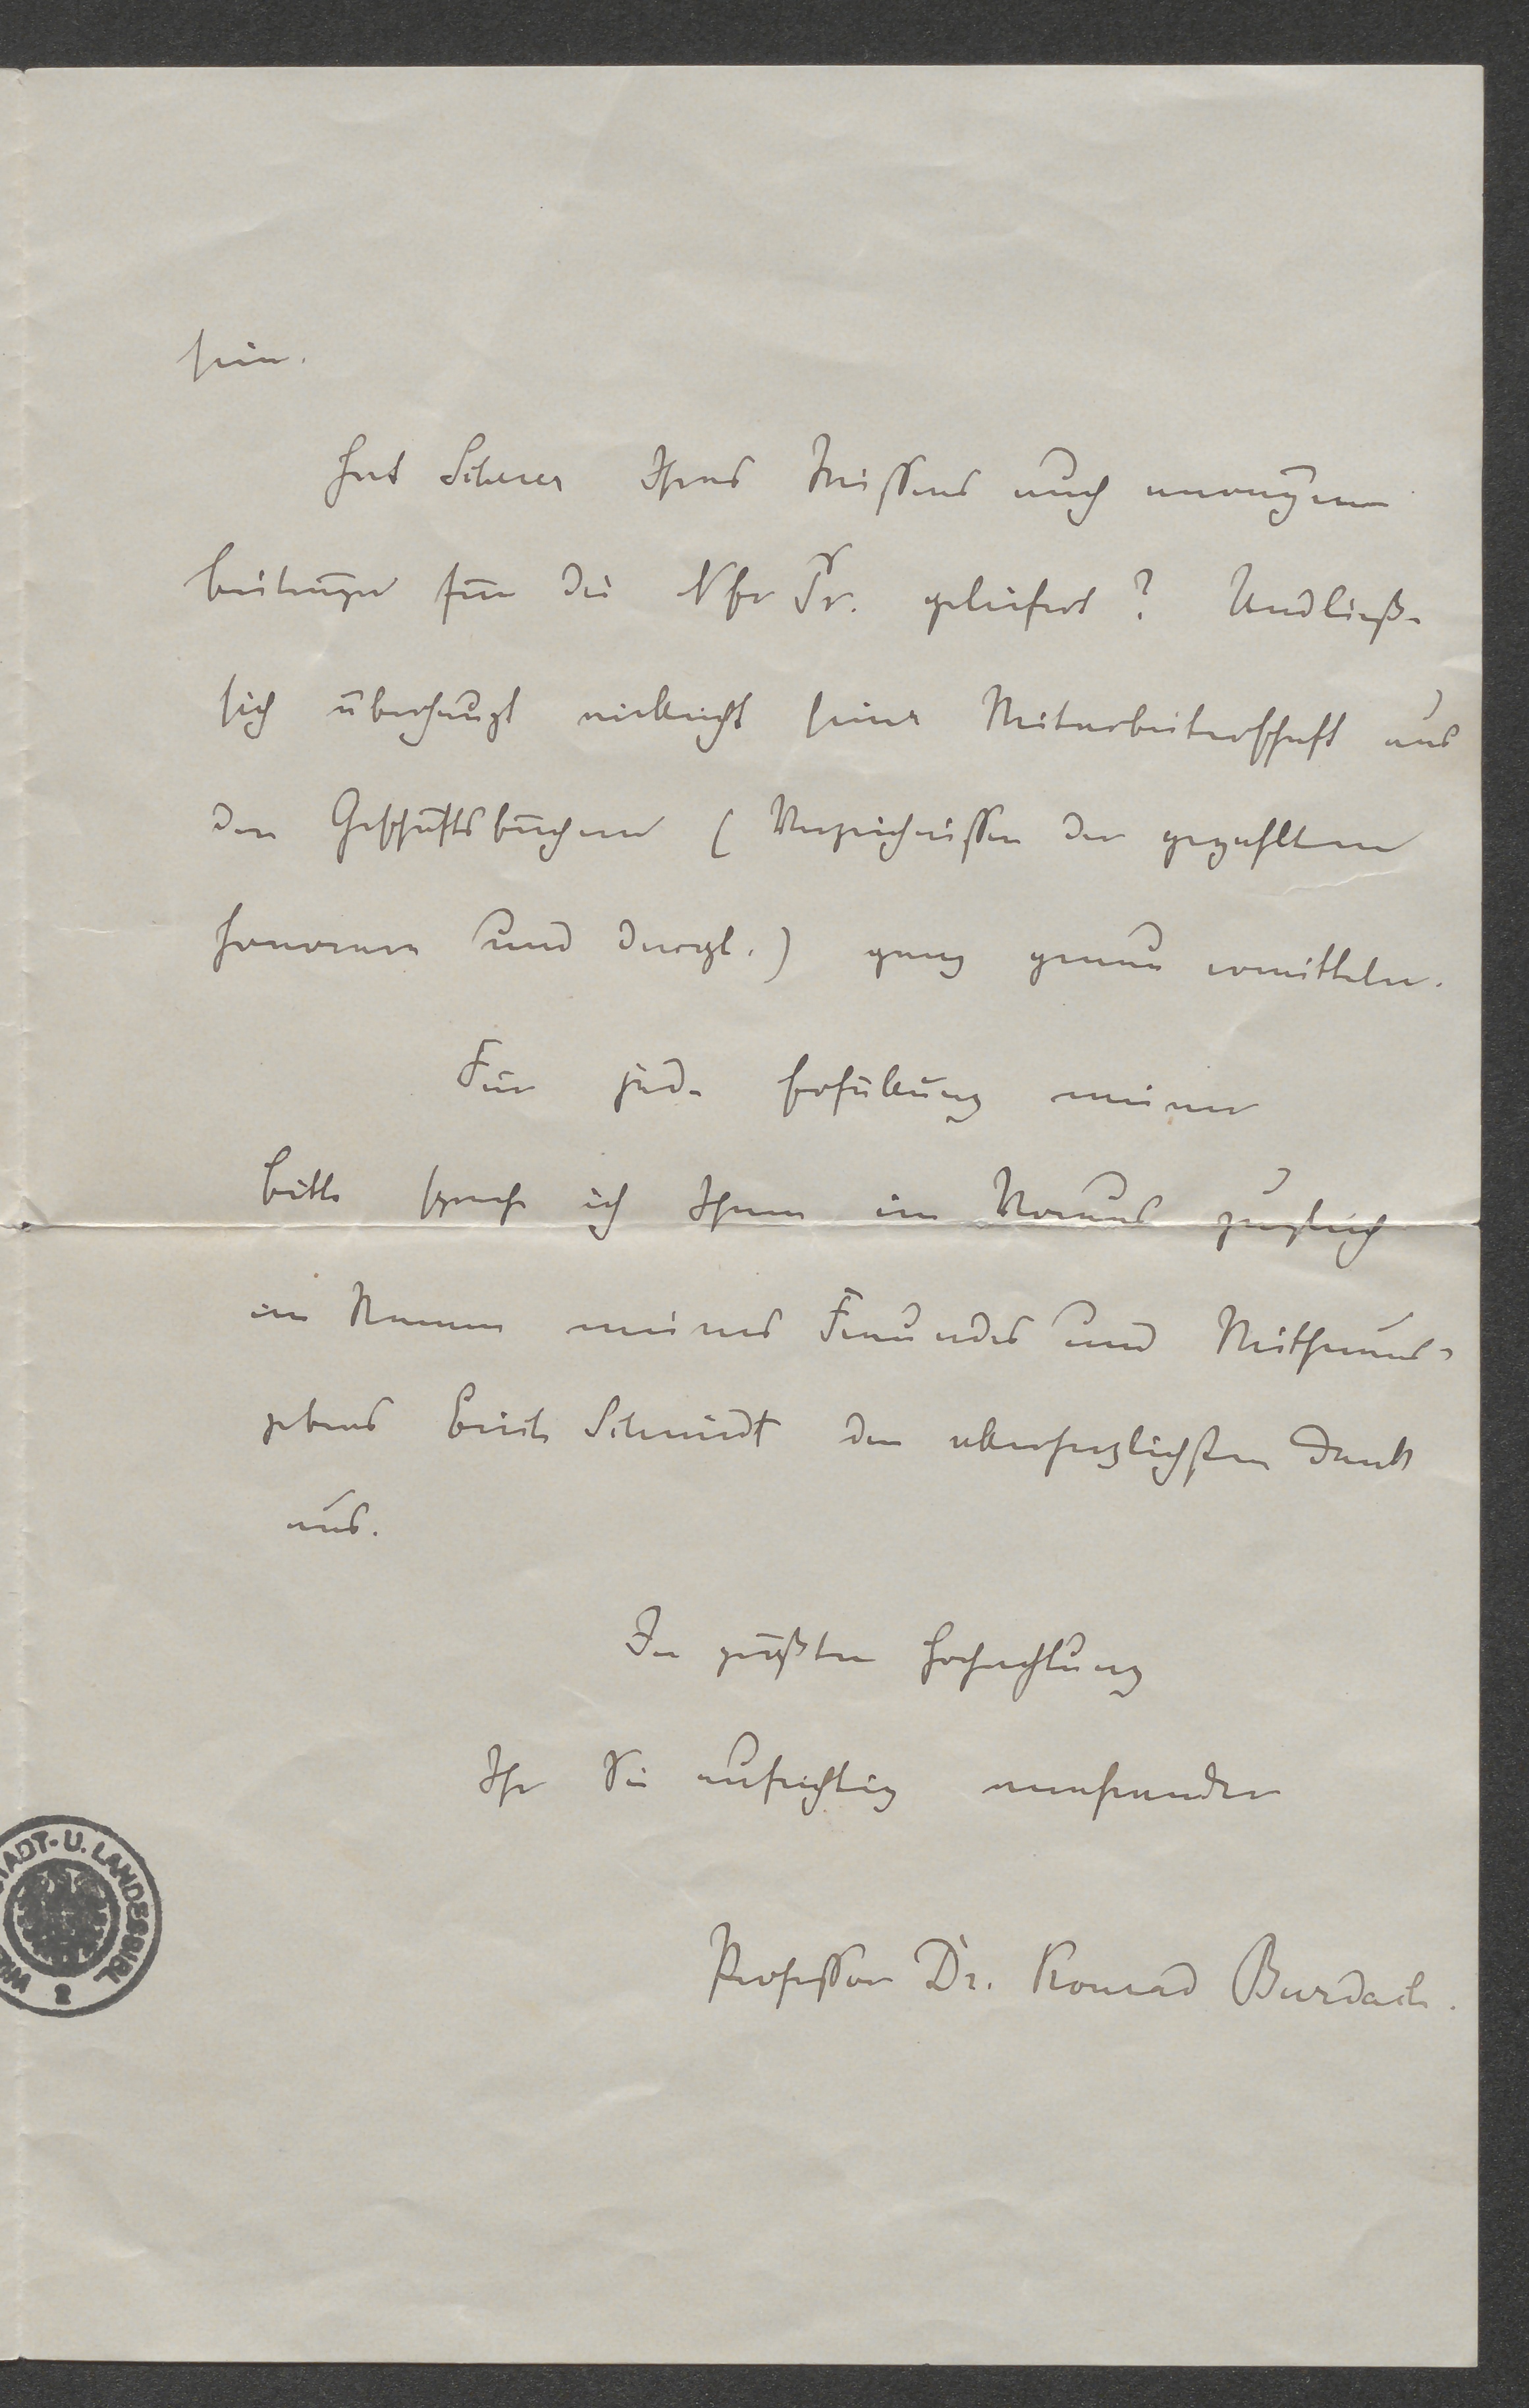 sein.
Hat Scherer Ihres Wissens auch anonym
Beiträge für die N fr Pr. geliefert? Und ließe
sich überhaupt vielleicht seine Mitarbeiterschaft aus
den Geschäftsbüchern (Verzeichnissen der gezahlten
Honorare und dergl.) ganz genau ermitteln.
Für jede Erfüllung meiner
Bitte spreche ich Ihnen im Voraus zugleich
im Namen meines Freundes und Mitheraus-
gebers Erich Schmidt den allerherzlichsten Dank
aus.
In größter Hochachtung
Ihr Sie aufrichtig verehrender
Professor Dr. Konrad Burdach.
STADT- U. LANDESBIBL.
WIEN
2